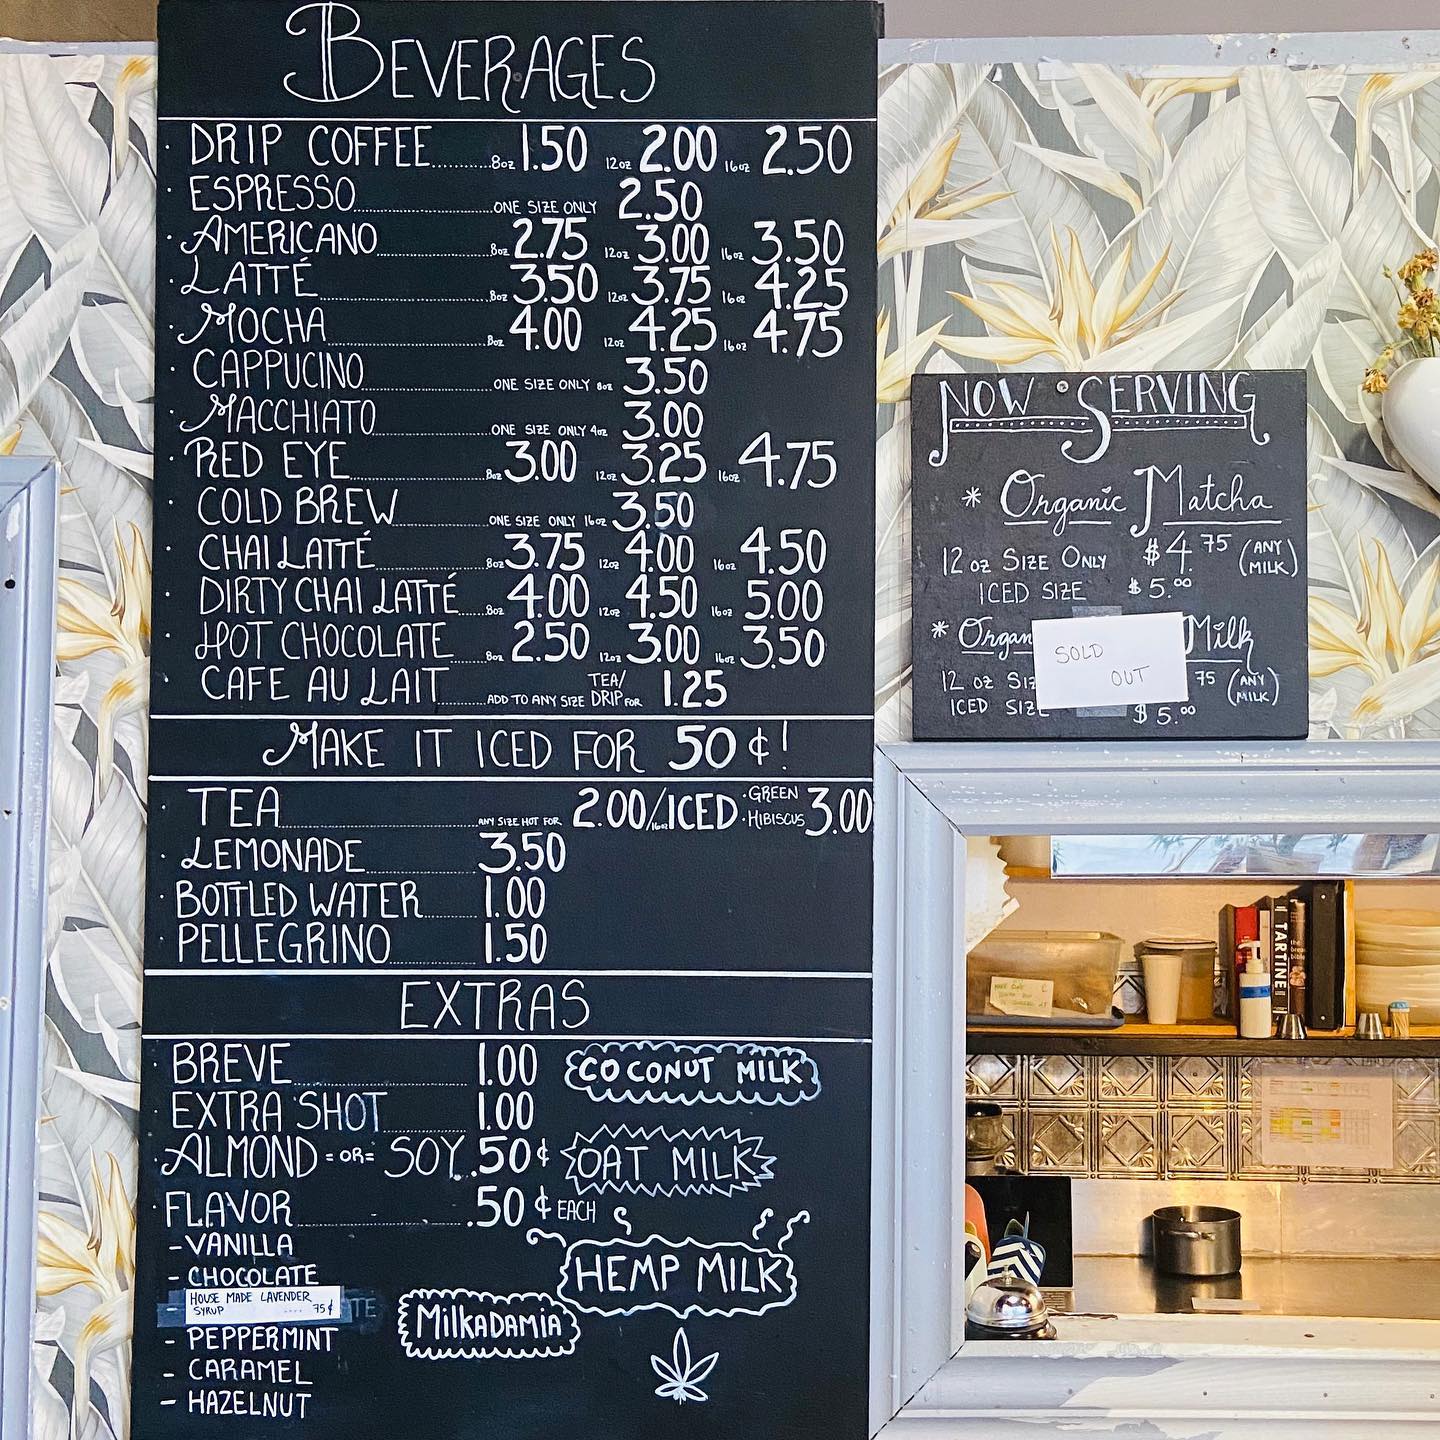 BEVERAGES
· DRIP COFFEE 8oz 1.50 12oz 2.00 16oz 2.50
· ESPRESSO ONE SIZE ONLY 2.50
· AMERICANO 8oz 2.75 12oz 3.00 16oz 3.50
· LATTÉ 8oz 3.50 12oz 3.75 16oz 4.25
· MOCHA 8oz 4.00 12oz 4.25 16oz 4.75
· CAPPUCINO ONE SIZE ONLY 8oz 3.50
· MACCHIATO ONE SIZE ONLY 4oz 3.00
· RED EYE 8oz 3.00 12oz 3.25 16oz 4.75
· COLD BREW ONE SIZE ONLY 16oz 3.50
· CHAI LATTÉ 8oz 3.75 12oz 4.00 16oz 4.50
· DIRTY CHAI LATTÉ 8oz 4.00 12oz 4.50 16oz 5.00
· HOT CHOCOLATE 8oz 2.50 12oz 3.00 16oz 3.50
· CAFE AU LAIT ADD TO ANY SIZE TEA/DRIP FOR 1.25
MAKE IT ICED FOR 50¢!
· TEA ANY SIZE HOT FOR 2.00/16oz ICED · GREEN · HIBISCUS 3.00
· LEMONADE 3.50
· BOTTLED WATER 1.00
· PELLEGRINO 1.50
EXTRAS
· BREVE 1.00
· EXTRA SHOT 1.00
· ALMOND =OR= SOY .50¢
FLAVOR .50¢ EACH
- VANILLA
- CHOCOLATE
HOUSE MADE LAVENDER
SYRUP .... 75¢
- PEPPERMINT
- CARAMEL
- HAZELNUT
COCONUT MILK
OAT MILK
HEMP MILK
MILKADAMIA
NOW SERVING
* Organic Matcha
12 oz SIZE ONLY $4.75 (ANY MILK)
ICED SIZE $5.00
* Organ Milk
SOLD
OUT
12 oz SIZ 75 (ANY MILK)
ICED SIZE $5.00
TARTINE